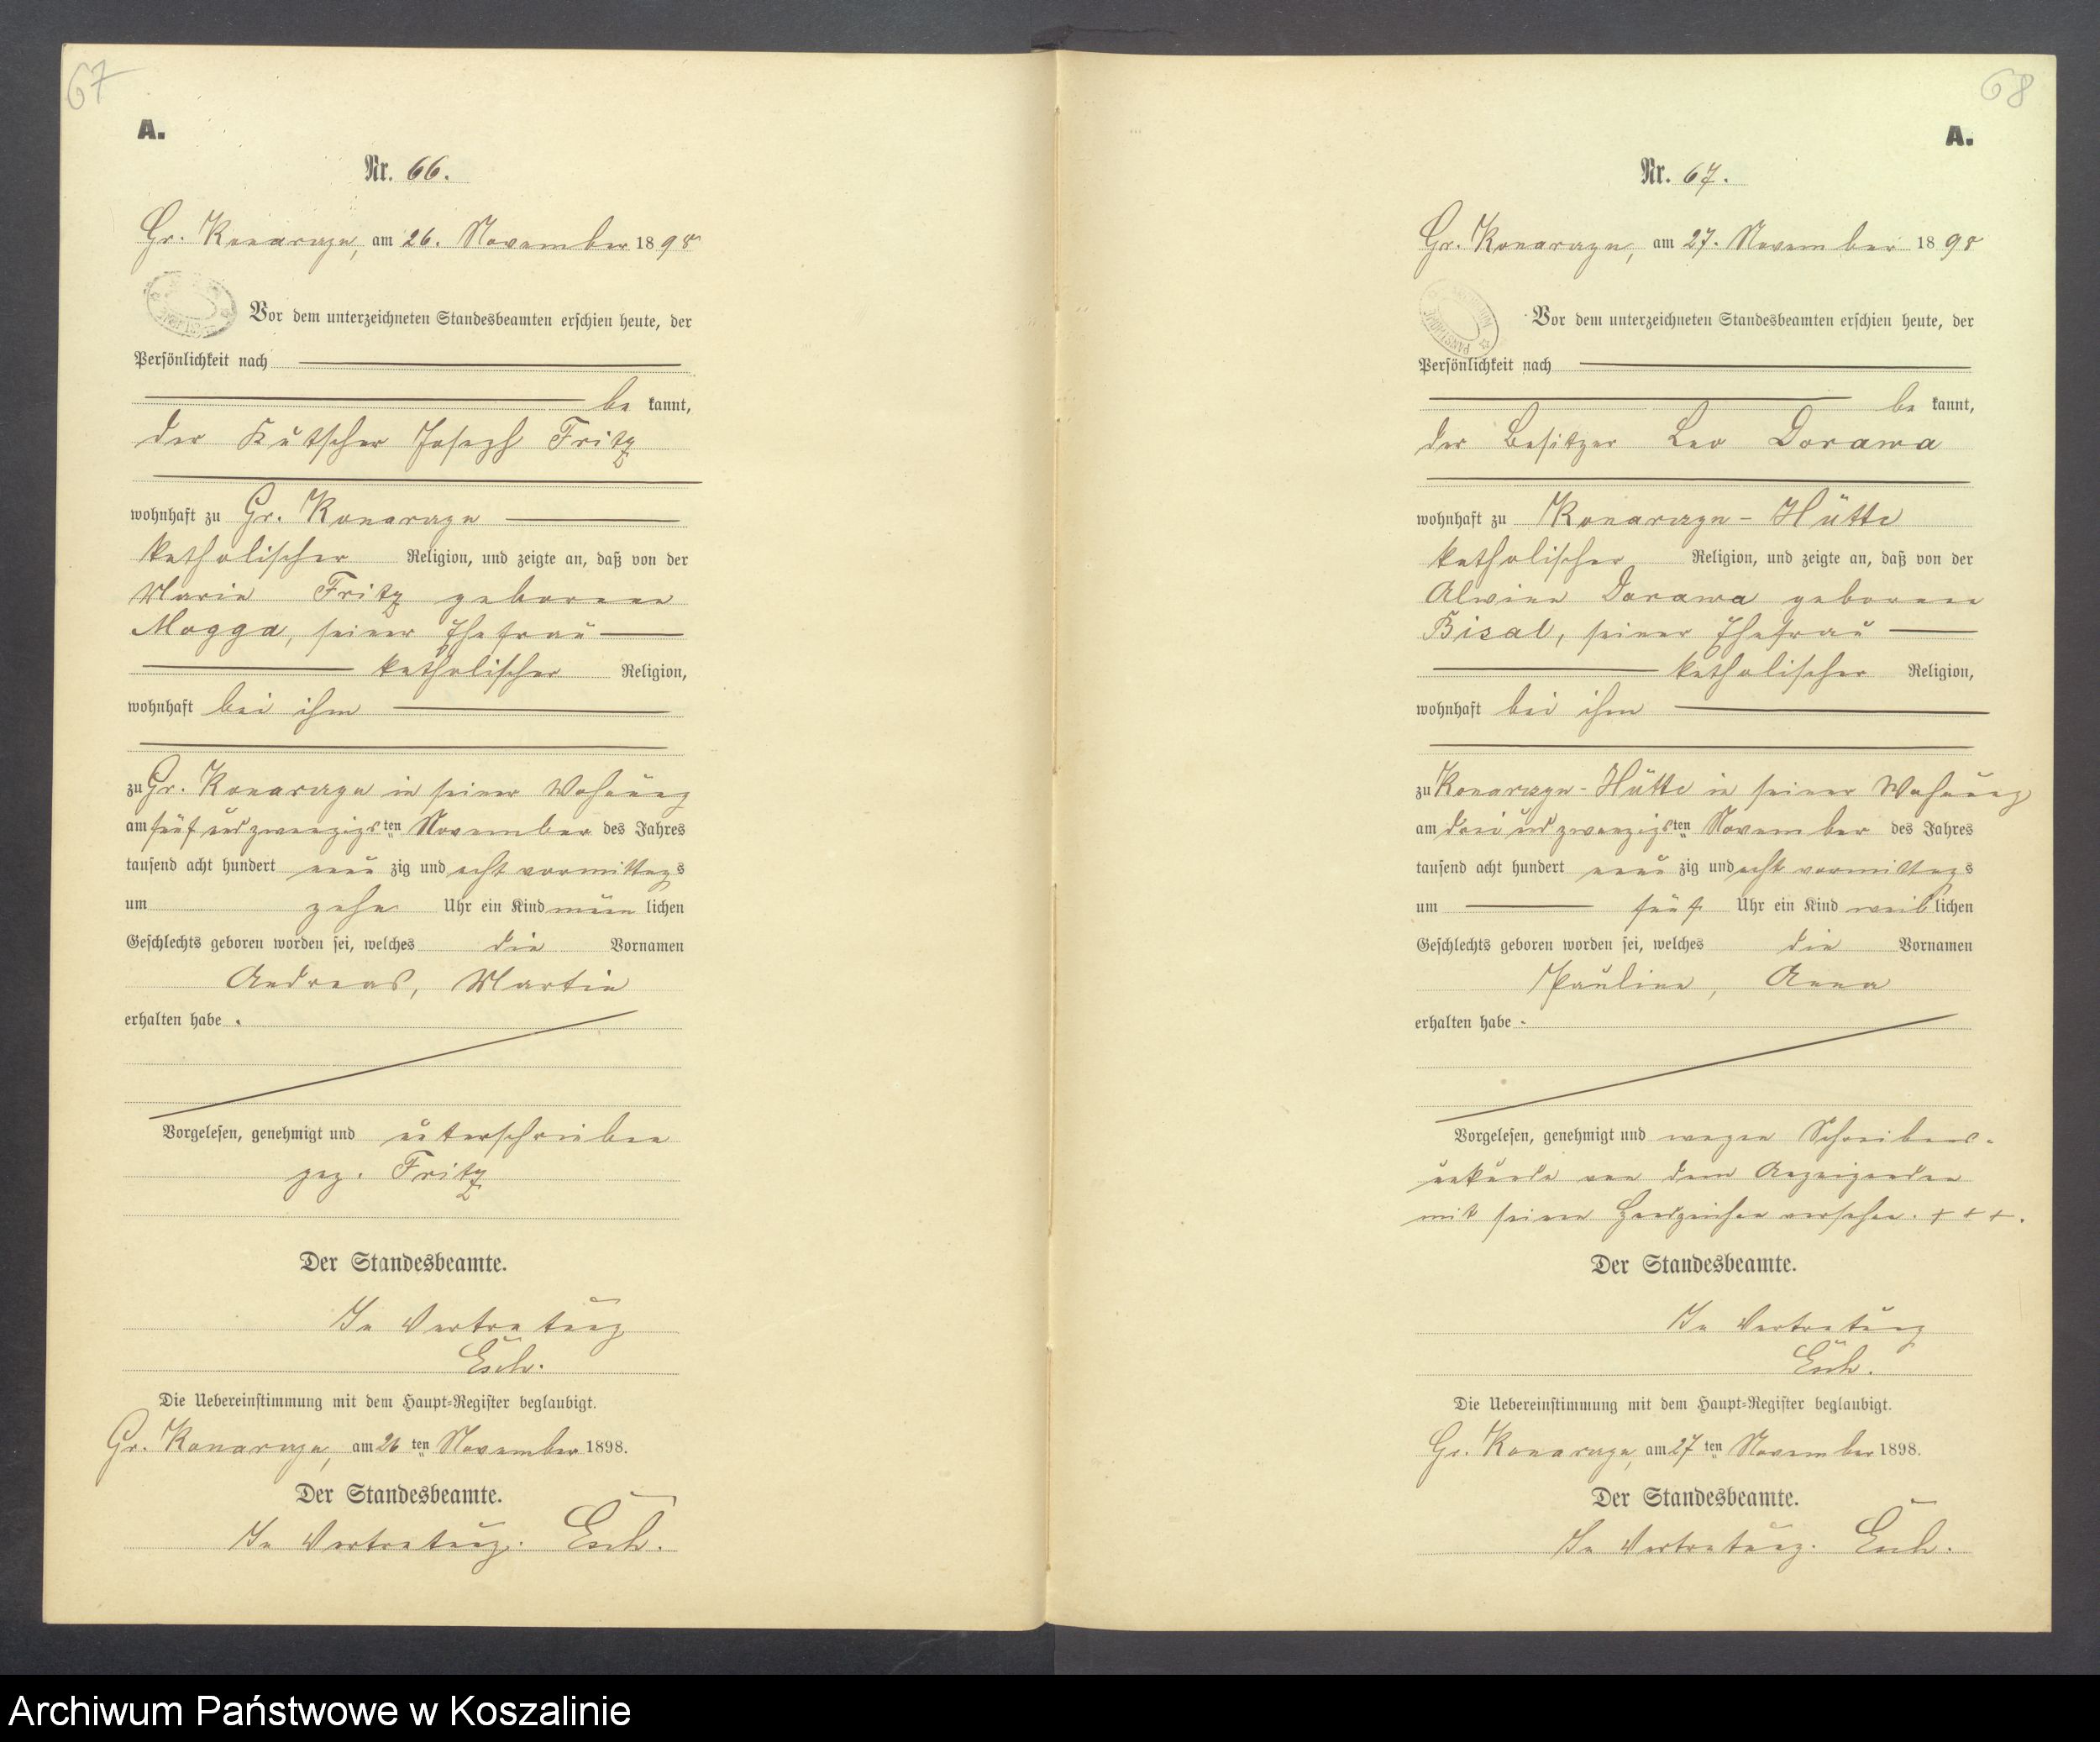 67
A.
Nr. 66.
Gr. Konarczyn, am 26. November 1898
Vor dem unterzeichneten Standesbeamten erschien heute, der
Persönlichkeit nach
be kannt,
der Kutscher Joseph Fritz
wohnhaft zu Gr. Konarczyn
katholischer Religion, und zeigte an, daß von der
Marie Fritz geborene
Mogga, seiner Ehefrau
katholischer Religion,
wohnhaft bei ihm
zu Gr. Konarczyn in seiner Wohnung
am fünf und zwanzigsten November des Jahres
tausend acht hundert neun zig und acht vormittags
um zehn Uhr ein Kind männ lichen
Geschlechts geboren worden sei, welches die Vornamen
Andreas, Martin
erhalten habe.
Vorgelesen, genehmigt und unterschrieben
gez. Fritz
Der Standesbeamte.
In Vertretung
Esch.
Die Uebereinstimmung mit dem Haupt-Register beglaubigt.
Gr. Konarczyn, am 26 ten November 1898.
Der Standesbeamte.
In Vertretung. Esch.
68
A.
Nr. 67.
Gr. Konarczyn, am 27. November 1898
Vor dem unterzeichneten Standesbeamten erschien heute, der
Persönlichkeit nach
be kannt,
der Besitzer Leo Dorawa
wohnhaft zu Konarczyn-Hütte
katholischer Religion, und zeigte an, daß von der
Alwine Dorawa geborene
Bisal, seiner Ehefrau
katholischer Religion,
wohnhaft bei ihm
zu Konarczyn-Hütte in seiner Wohnung
am drei und zwanzigsten November des Jahres
tausend acht hundert neun zig und acht vormittags
um fünf Uhr ein Kind weib lichen
Geschlechts geboren worden sei, welches die Vornamen
Pauline, Anna
erhalten habe.
Vorgelesen, genehmigt und wegen Schreibens-
unkunde von dem Anzeigenden
mit seinen Handzeichen versehen. + + +.
Der Standesbeamte.
In Vertretung
Esch.
Die Uebereinstimmung mit dem Haupt-Register beglaubigt.
Gr. Konarczyn, am 27 ten November 1898.
Der Standesbeamte.
In Vertretung. Esch.
Archiwum Państwowe w Koszalinie